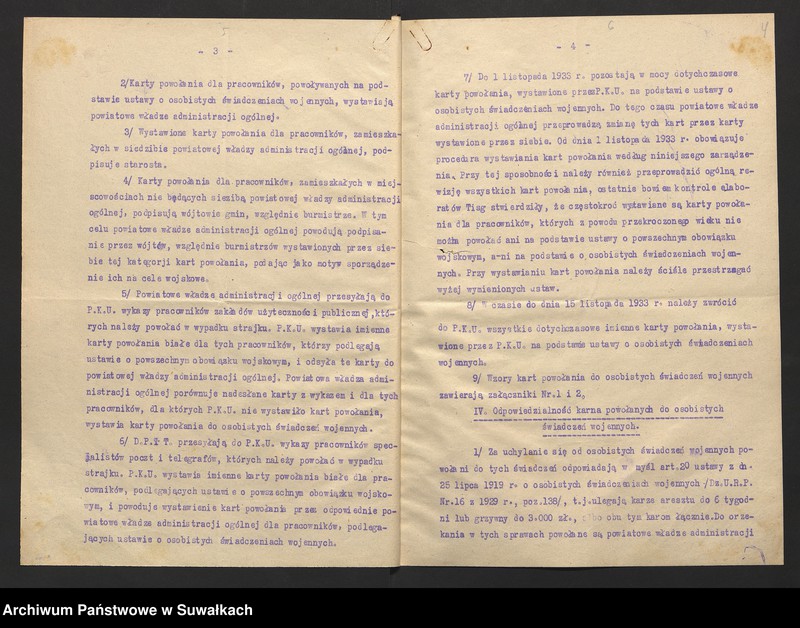 5
- 3 -
2/Karty powołania dla pracowników, powoływanych na pod-
stawie ustawy o osobistych świadczeniach wojennych, wystawiają
powiatowe władze administracji ogólnej.
3/ Wystawione karty powołania dla pracowników, zamieszka-
łych w siedzibie powiatowej władzy administracji ogólnej, pod-
pisuje starosta.
4/ Karty powołania dla pracowników, zamieszkałych w miej-
scowościach nie będących siedzibą powiatowej władzy administracji
ogólnej, podpisują wójtowie gmin, względnie burmistrze. W tym
celu powiatowe władze administracji ogólnej powodują podpisa-
nie przez wójtów, względnie burmistrzów wystawionych przez sie-
bie tej kategorji kart powołania, podając jako motyw sporządze-
nie ich na cele wojskowe.
5/ Powiatowe władze administracji ogólnej przesyłają do
P.K.U. wykazy pracowników zakładów użyteczności publicznej,któ-
rych należy powołać w wypadku strajku. P.K.U. wystawia imienne
karty powołania białe dla tych pracowników, którzy podlegają
ustawie o powszechnym obowiązku wojskowym, i odsyła te karty do
powiatowej władzy administracji ogólnej. Powiatowa władza admi-
nistracji ogólnej porównuje nadesłane karty z wykazem i dla tych
pracowników, dla których P.K.U. nie wystawiło kart powołania,
wystawia karty powołania do osobistych świadczeń wojennych.
6/ D.P.i T. przesyłają do P.K.U. wykazy pracowników spec-
jalistów poczt i telegrafów, których należy powołać w wypadku
strajku. P.K.U. wystawia imienne karty powołania białe dla pra-
cowników, podlegających ustawie o powszechnym obowiązku wojsko-
wym, i powoduje wystawienie kart powołania przez odpowiednie po-
wiatowe władze administracji ogólnej dla pracowników, podlega-
jących ustawie o osobistych świadczeniach wojennych.
6
4
- 4 -
7/ Do 1 listopada 1933 r. pozostają w mocy dotychczasowe
karty powołania, wystawione przezP.K.U. na podstawie ustawy o
osobistych świadczeniach wojennych. Do tego czasu powiatowe władze
administracji ogólnej przeprowadzą zmianę tych kart przez karty
wystawione przez siebie. Od dnia 1 listopada 1933 r. obowiązuje
procedura wystawiania kart powołania według niniejszego zarządze-
nia. Przy tej sposobności należy również przeprowadzić ogólną re-
wizję wszystkich kart powołania, ostatnie bowiem kontrole elabo-
ratów Tiag stwierdziły, że częstokroć wystawiane są karty powoła-
nia dla pracowników, których z powodu przekroczonego wieku nie
można powołać ani na podstawie ustawy o powszechnym obowiązku
wojskowym, a-ni na podstawie o osobistych świadczeniach wojen-
nych. Przy wystawianiu kart powołania należy ściśle przestrzegać
wyżej wymienionych ustaw.
8/ W czasie do dnia 15 listopada 1933 r. należy zwrócić
do P.K.U. wszystkie dotychczasowe imienne karty powołania, wysta-
wione przez P.K.U. na podstawie ustawy o osobistych świadczeniach
wojennych.
9/ Wzory kart powołania do osobistych świadczeń wojennych
zawierają załączniki Nr.1 i 2.
IV. Odpowiedzialność karna powołanych do osobistych
świadczeń wojennych.
1/ Za uchylanie się od osobistych świadczeń wojennych po-
wołani do tych świadczeń odpowiadają w myśl art.20 ustawy z dn.
25 lipca 1919 r. o osobistych świadczeniach wojennych /Dz.U.R.P.
Nr.16 z 1929 r., poz.138/, t.j.ulegają karze aresztu do 6 tygod-
ni lub grzywny do 3.000 zł., albo obu tym karom łącznie.Do orze-
kania w tych sprawach powołane są powiatowe władze administracji
Archiwum Państwowe w Suwałkach